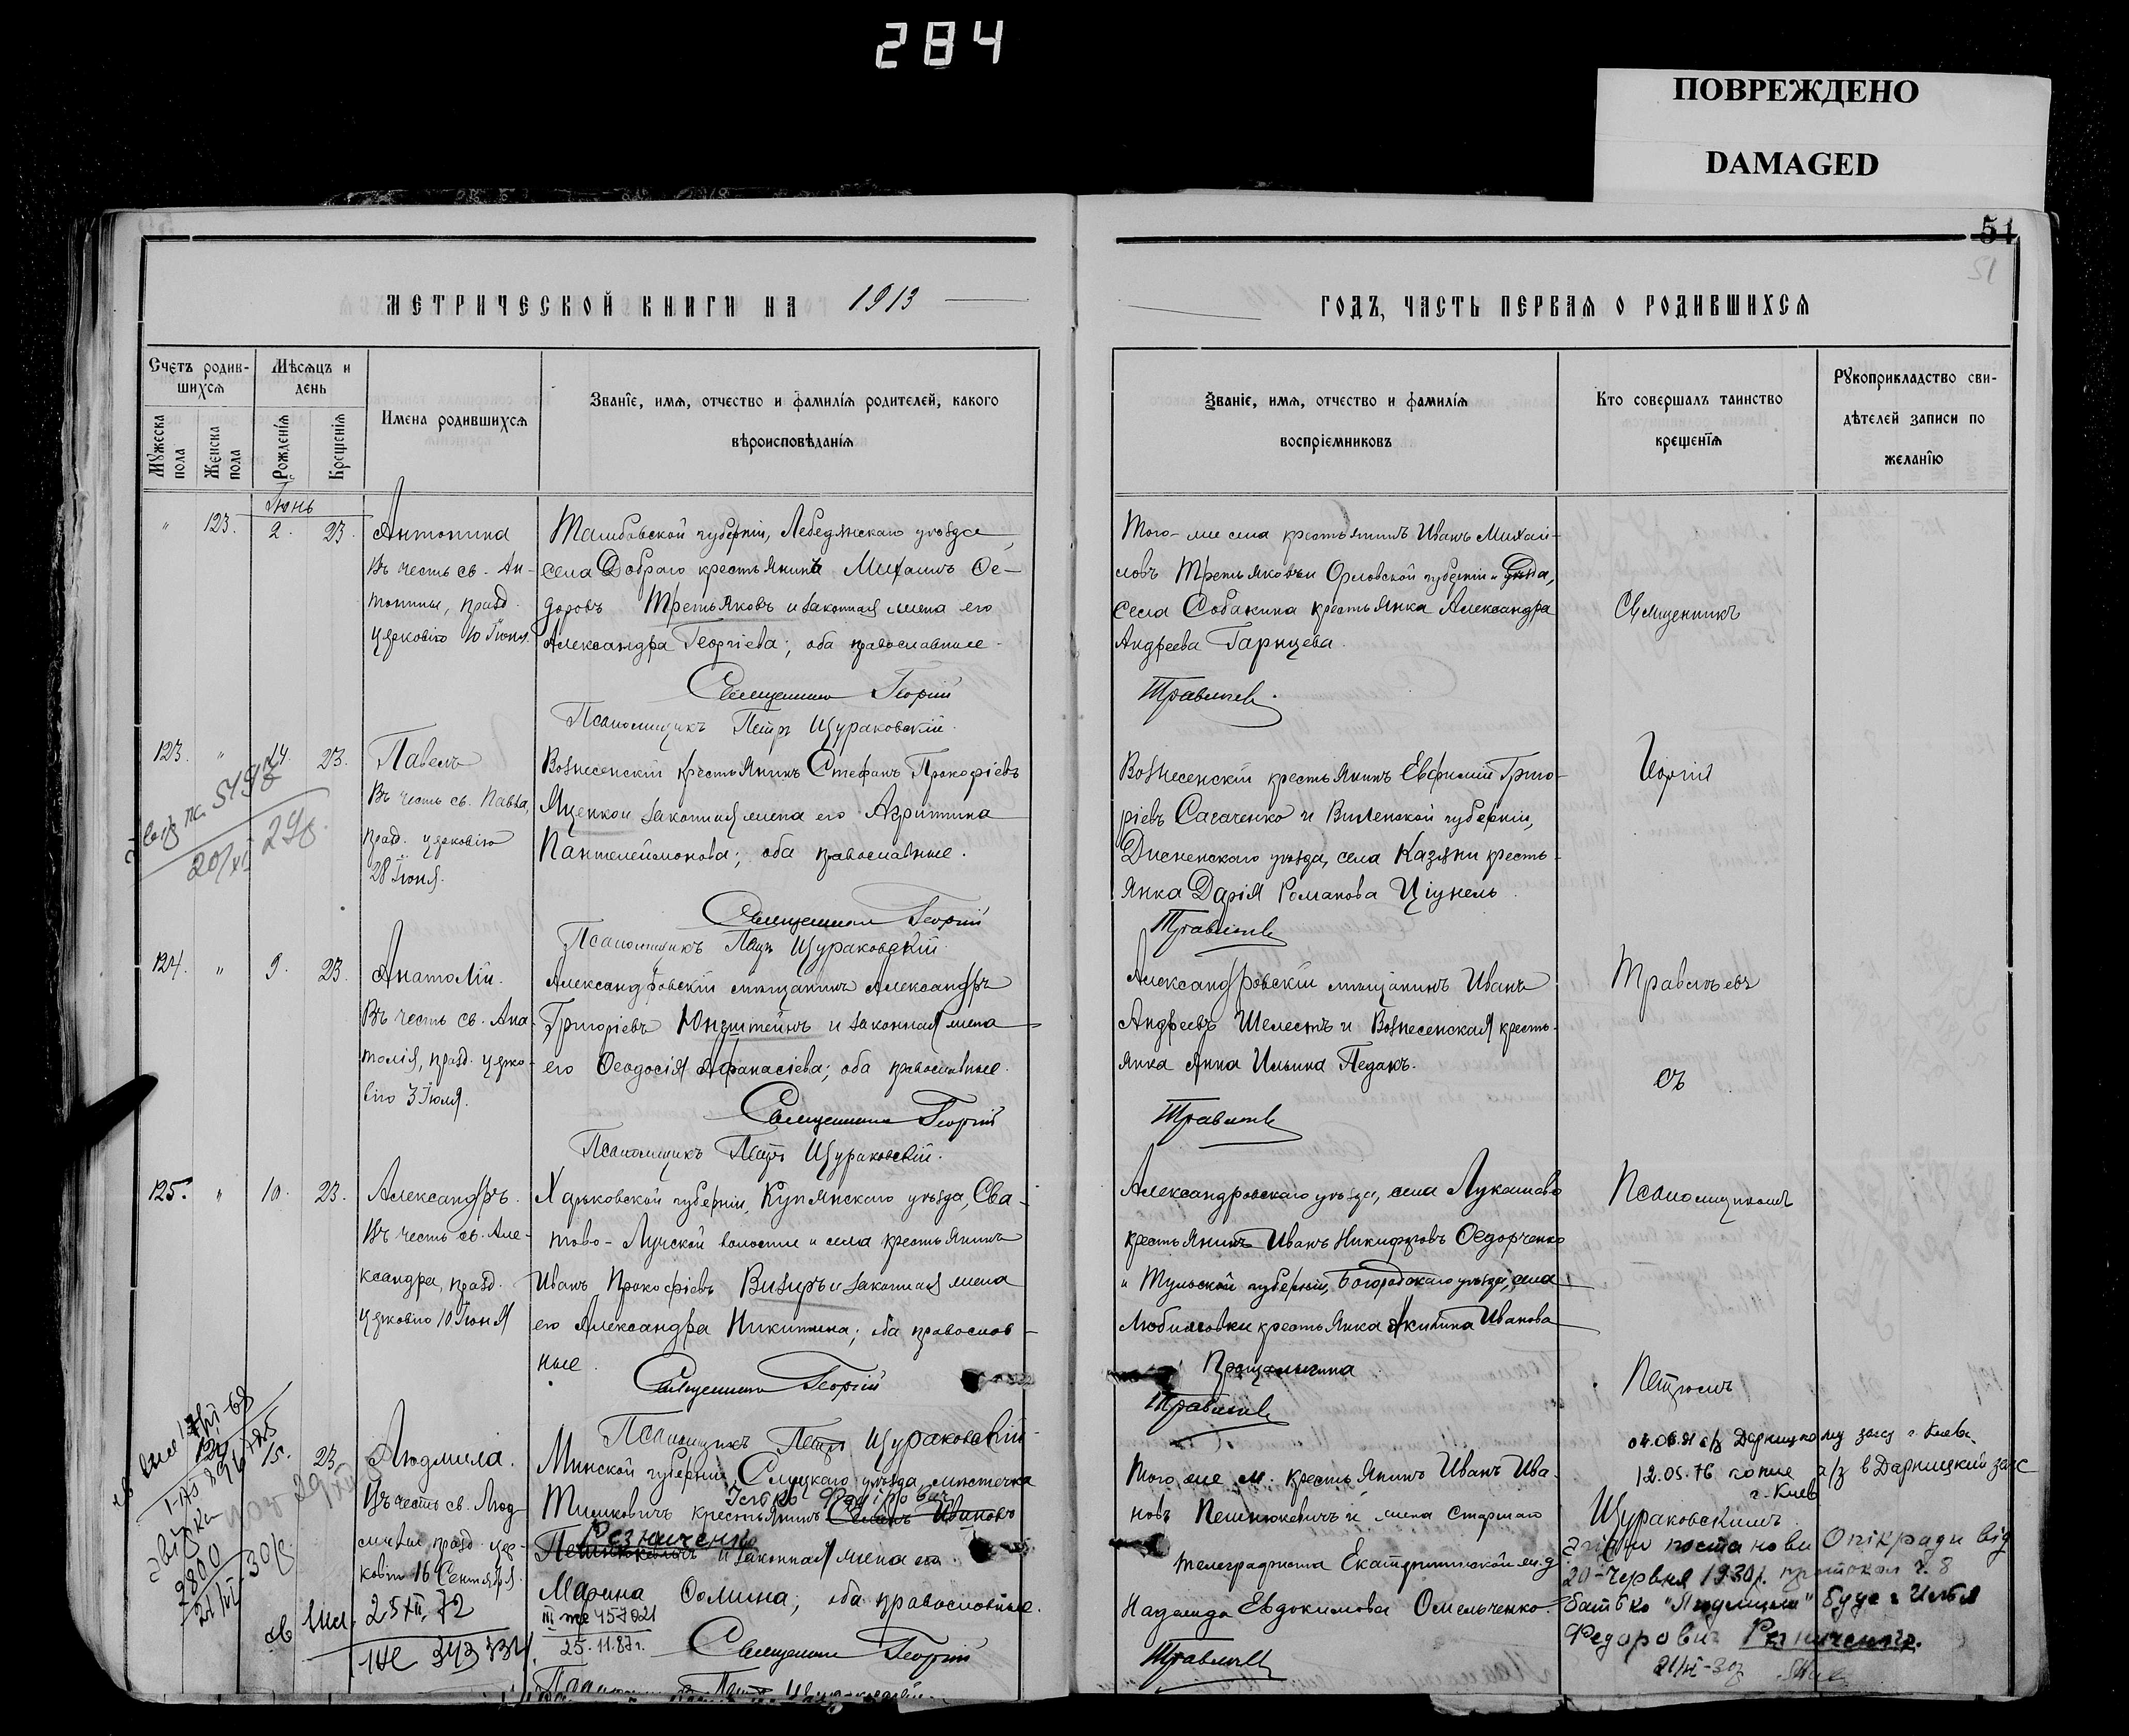 284
ПОВРЕЖДЕНО
DAMAGED
51
МЕТРИЧЕСКОЙ КНИГИ НА 1913
ГОДЪ, ЧАСТЬ ПЕРВАЯ О РОДИВШИХСЯ
Счетъ родив-
шихся
Мѣсяцъ и
день
Мужеска
пола
Женска
пола
Рожденія
Крещенія
Имена родившихся
Званіе, имя, отчество и фамилія родителей, какого
вѣроисповѣданія
Званіе, имя, отчество и фамилія
воспріемниковъ
Кто совершалъ таинство
крещенія
Рукоприкладство сви-
дѣтелей записи по
желанію
Іюнь
" 123. 2. 23.
Антонина
Въ честь св. Ан-
тонины, празд.
церковію 10 Іюня.
Тамбовской губерніи, Лебедянскаго уѣзда,
села Добраго крестьянинъ Михаилъ Ѳе-
доровъ Третьяковъ и законная жена его
Александра Георгіева; оба православные.
Священникъ Георгій
Псаломщикъ Петръ Щураковскій.
Того-же села крестьянинъ Иванъ Михай-
ловъ Третьяковъ и Орловской губерніи и уѣзда,
села Собакина крестьянка Александра
Андреева Гарнцева.
Травлѣевъ.
Священникъ
123. " 14. 23.
Павелъ
Въ честь св. Павла,
празд. церковію
28 Іюня.
Вознесенскій крестьянинъ Стефанъ Прокофіевъ
Яценко и законная жена его Агриппина
Пантелеймонова; оба православные.
Священникъ Георгій
Псаломщикъ Петръ Щураковскій.
Вознесенскій крестьянинъ Евфимій Григо-
ріевъ Сагаченко и Виленской губерніи,
Дисненскаго уѣзда, села Казяни кресть-
янка Дарія Романова Ціунель.
Георгій
124. " 9. 23.
Анатолій.
Въ честь св. Ана-
толія, празд. церко-
вію 3 Іюля.
Александровскій мѣщанинъ Александръ
Григоріевъ Юнгштейнъ и законная жена
его Ѳеодосія Афанасіева; оба православные.
Священникъ Георгій
Псаломщикъ Петръ Щураковскій.
Александровскій мѣщанинъ Иванъ
Андреевъ Шелестъ и Вознесенская кресть-
янка Анна Ильина Педакъ.
съ
125. " 10. 23.
Александръ.
Въ честь св. Але-
ксандра, празд.
церковію 10 Іюня
Харьковской губерніи, Купянскаго уѣзда, Сва-
тово-Лучской волости и села крестьянинъ
Иванъ Прокофіевъ Визиръ и законная жена
его Александра Никитина; оба православ-
ные.
Священникъ Георгій
Псаломщикъ Петръ Щураковскій
Александровскаго уѣзда, села Лукашово
крестьянинъ Иванъ Никифоровъ Ѳедорченко
и Тульской губерніи, Богородскаго уѣзда, села
Любимовки крестьянка Акилина Иванова
Псаломщикомъ
Петромъ
15. 23
Людмила.
Въ честь св. Люд-
милы, празд. цер-
ковію 16 Сентября.
25 XII, 72
25.11.87г.
Минской губерніи, Слуцкаго уѣзда, мѣстечка
Тимковичъ крестьянинъ Ивановъ
Резниченко
и законная жена его
Марина Ѳомина; оба православные.
Священникъ Георгій
Того же м. крестьянинъ Иванъ Ива-
новъ Пешнюкевичъ и жена старшаго
телеграфиста Екатерининской ж.д.
Надежда Евдокимова Омельченко.
12.05.76 в Дарницкий загс
г. Киев
Щураковскимъ.
згідно постанови Опікради від
20-червня 1930р. протокол ч. 8
батько "Людмили" буде Илья
Федорович Резниченко.